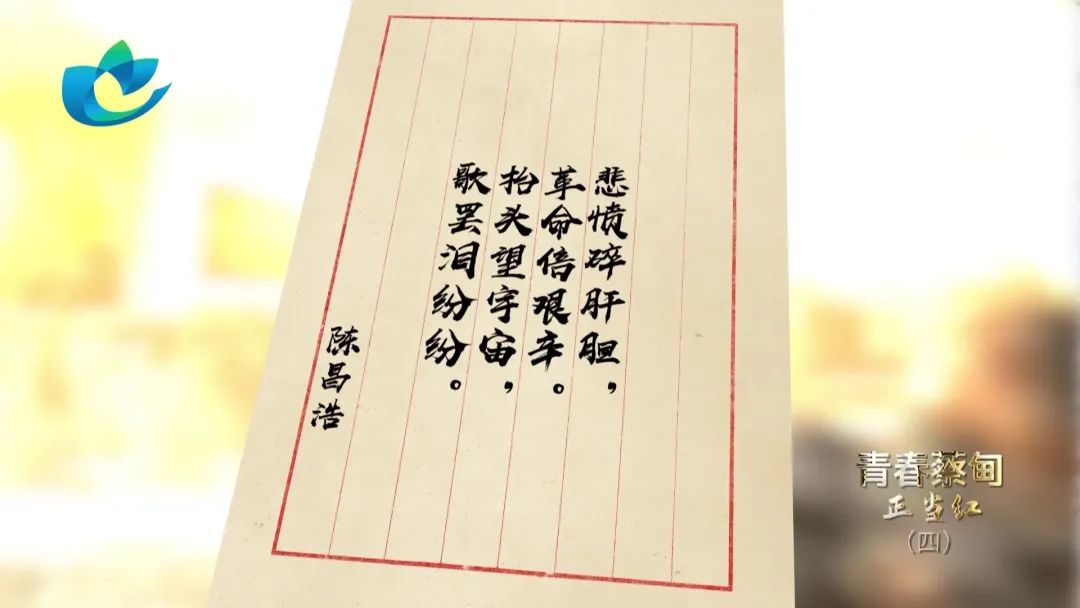 悲愤碎肝胆，
革命倍艰辛。
抬头望宇宙，
歌罢泪纷纷。
陈昌浩
青春蔡甸
正当红
（四）